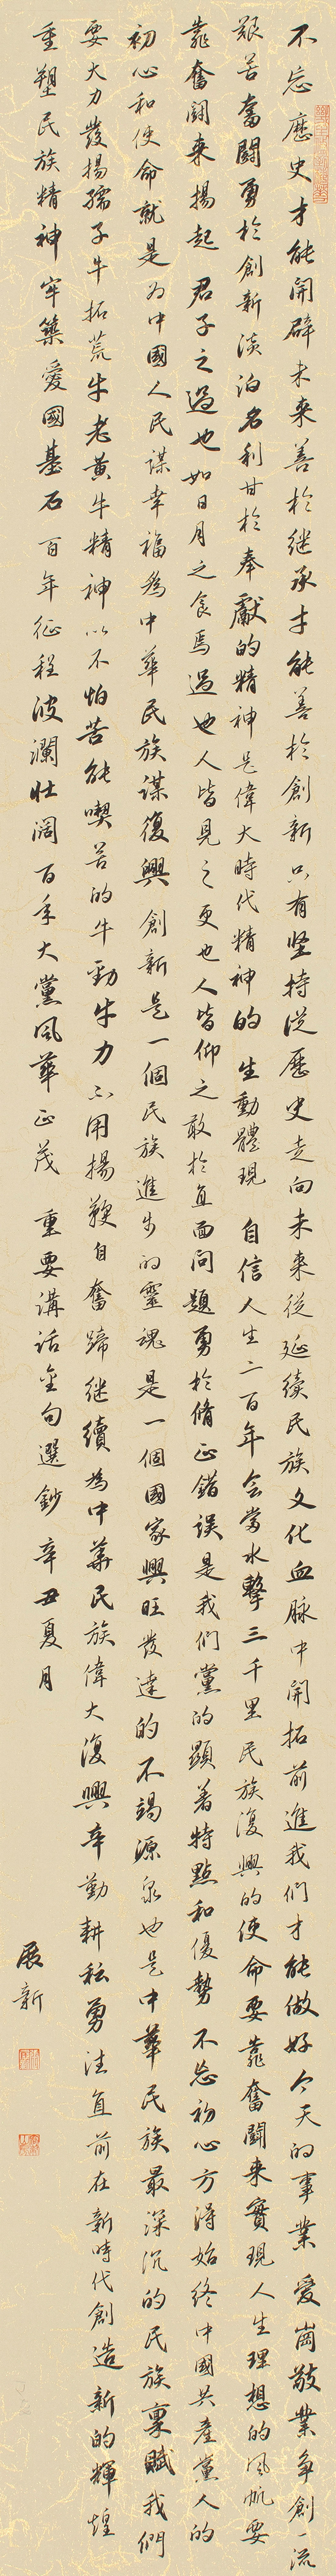 不忘歷史才能開辟未来善於继承才能善於創新只有坚持從歷史走向未来從延續民族文化血脉中開拓前進我们才能做好今天的事業愛崗敬業争創一流
艱苦奮鬭勇於創新淡泊名利甘於奉獻的精神是偉大時代精神的生動體現自信人生二百年会當水擊三千里民族復興的使命要靠奮鬭来實現人生理想的風帆要
靠奮鬭来揚起君子之過也如日月之食焉過也人皆見之更也人皆仰之敢於直面问題勇於脩正錯误是我們黨的顯著特點和優勢不忘初心方得始终中國共產黨人的
初心和使命就是为中國人民謀幸福為中華民族謀復興創新是一個民族進步的靈魂是一個國家興旺發達的不竭源泉也是中華民族最深沉的民族禀賦我們
要大力發揚孺子牛拓荒牛老黄牛精神以不怕苦能喫苦的牛勁牛力不用揚鞭自奮蹄继續為中華民族偉大復興辛勤耕耘勇往直前在新時代創造新的輝煌
重塑民族精神牢築愛國基石百年征程波瀾壮阔百年大黨風華正茂重要講話金句選鈔辛丑夏月
展新